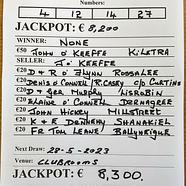 Numbers:
4 12 14 27
JACKPOT: € 8,200
WINNER: NONE
€50 JOHN O' KEEFFE KILETRA
SELLER: J O' KEEFFE
€20 D & R O' FLYNN ROOSALEE
€20 DENIS O'CONNELL R. CASEY C/O CURTINS
€20 D & GER MURPHY LISROBIN
€20 ELAINE O' CONNELL DERNAGREE
€20 JOHN HICKEY MILLSTREET
€20 K & E DENNEHY SHANAKIEL
€20 FR TOM LEANE BALLYHEIGUE
Next Draw: 28-5-2023
Venue: CLUBROOMS
JACKPOT: € 8,300.